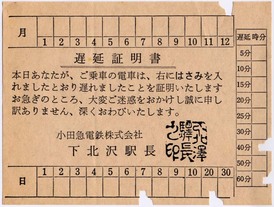 月 1 2 3 4 5 6 7 8 9 10 11 12
遅延証明書
本日あなたが、ご乗車の電車は、右にはさみを
入れましたとおり遅れましたことを証明いたします
お急ぎのところ、大変ご迷惑をおかけし誠に申し
訳ありません、深くおわびいたします。
小田急電鉄株式会社
下北沢駅長
下北沢駅長之印
日
遅延時分
5分
10分
15分
20分
25分
30分
40分
50分
60分